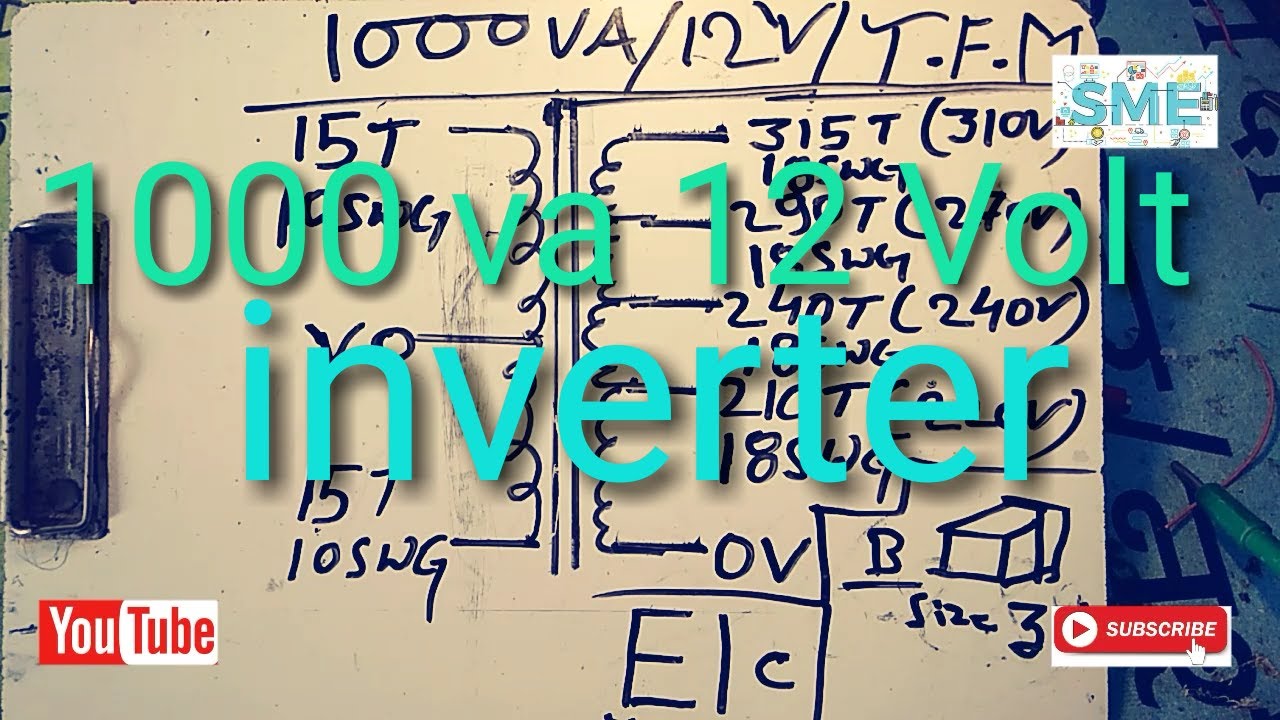 1000VA/12V/T.F.M
SME
15T
315T (310V)
18SWG
1000 va 12 Volt
10SWG
290T (270V)
18SWG
240T (240V)
18SWG
inverter
210T
18SWG
15T
10SWG
0V
B
Size 3
E|c
YouTube
SUBSCRIBE